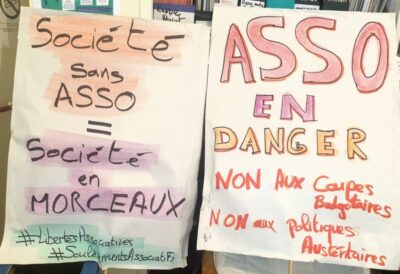 Société
sans
ASSO
=
Société
en
MORCEAUX
#LibertesAssociatives
ASSO
EN
DANGER
NON AUX Coupes
Budgétaires
NON aux politiques
Austéritaires